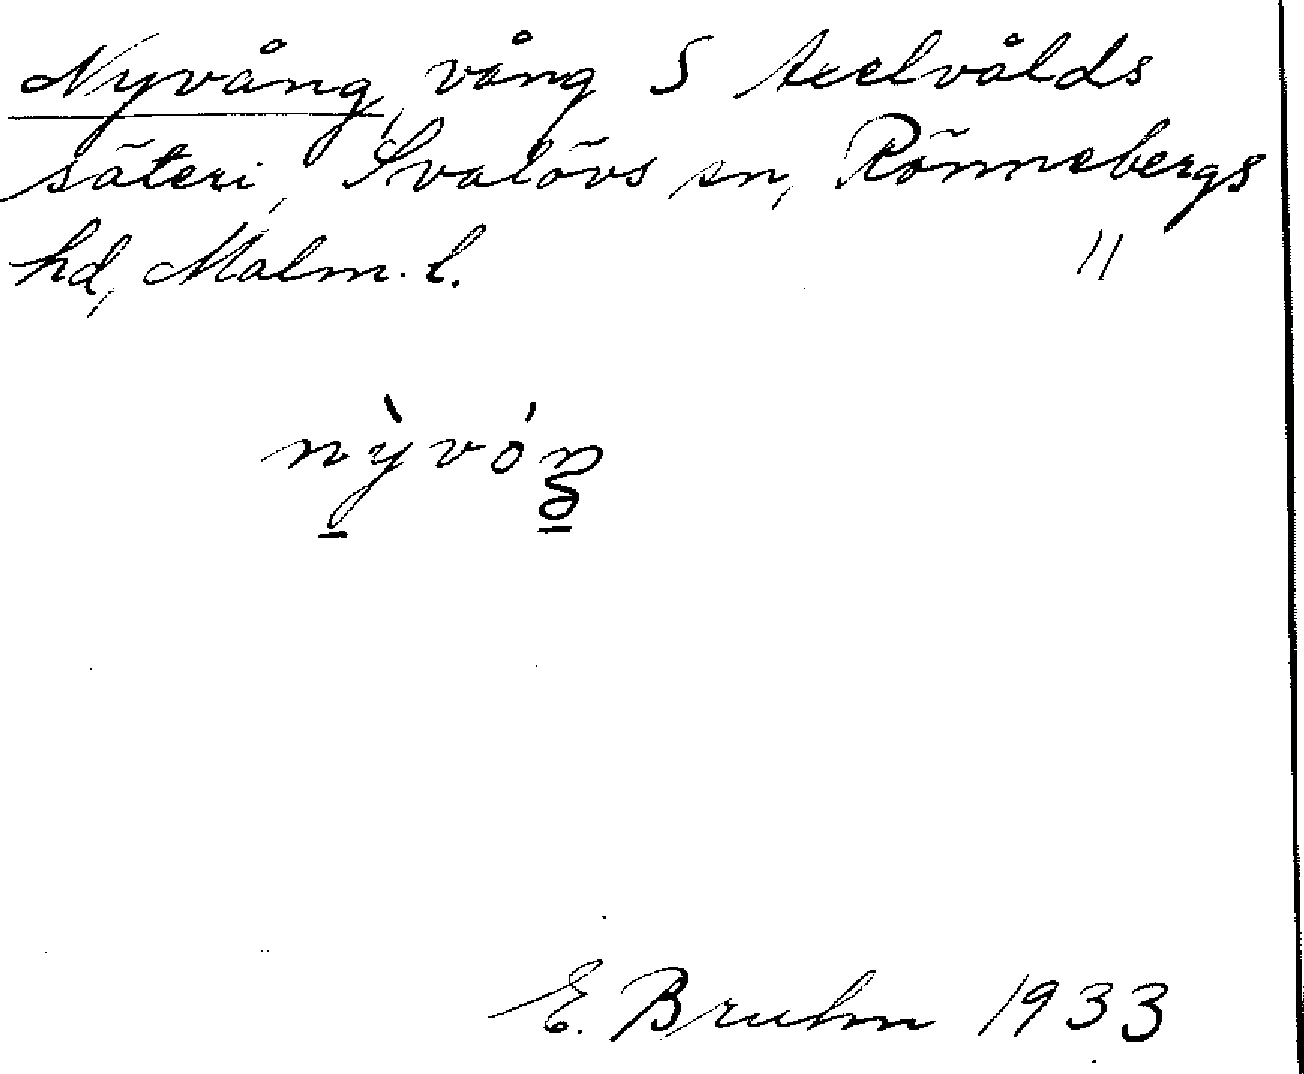 Nyvång, vång S Axelvålds
säteri, Svalövs sn, Rönnebergs
hd, Malm. l. 11
nỳvóŋ
E. Bruhn 1933